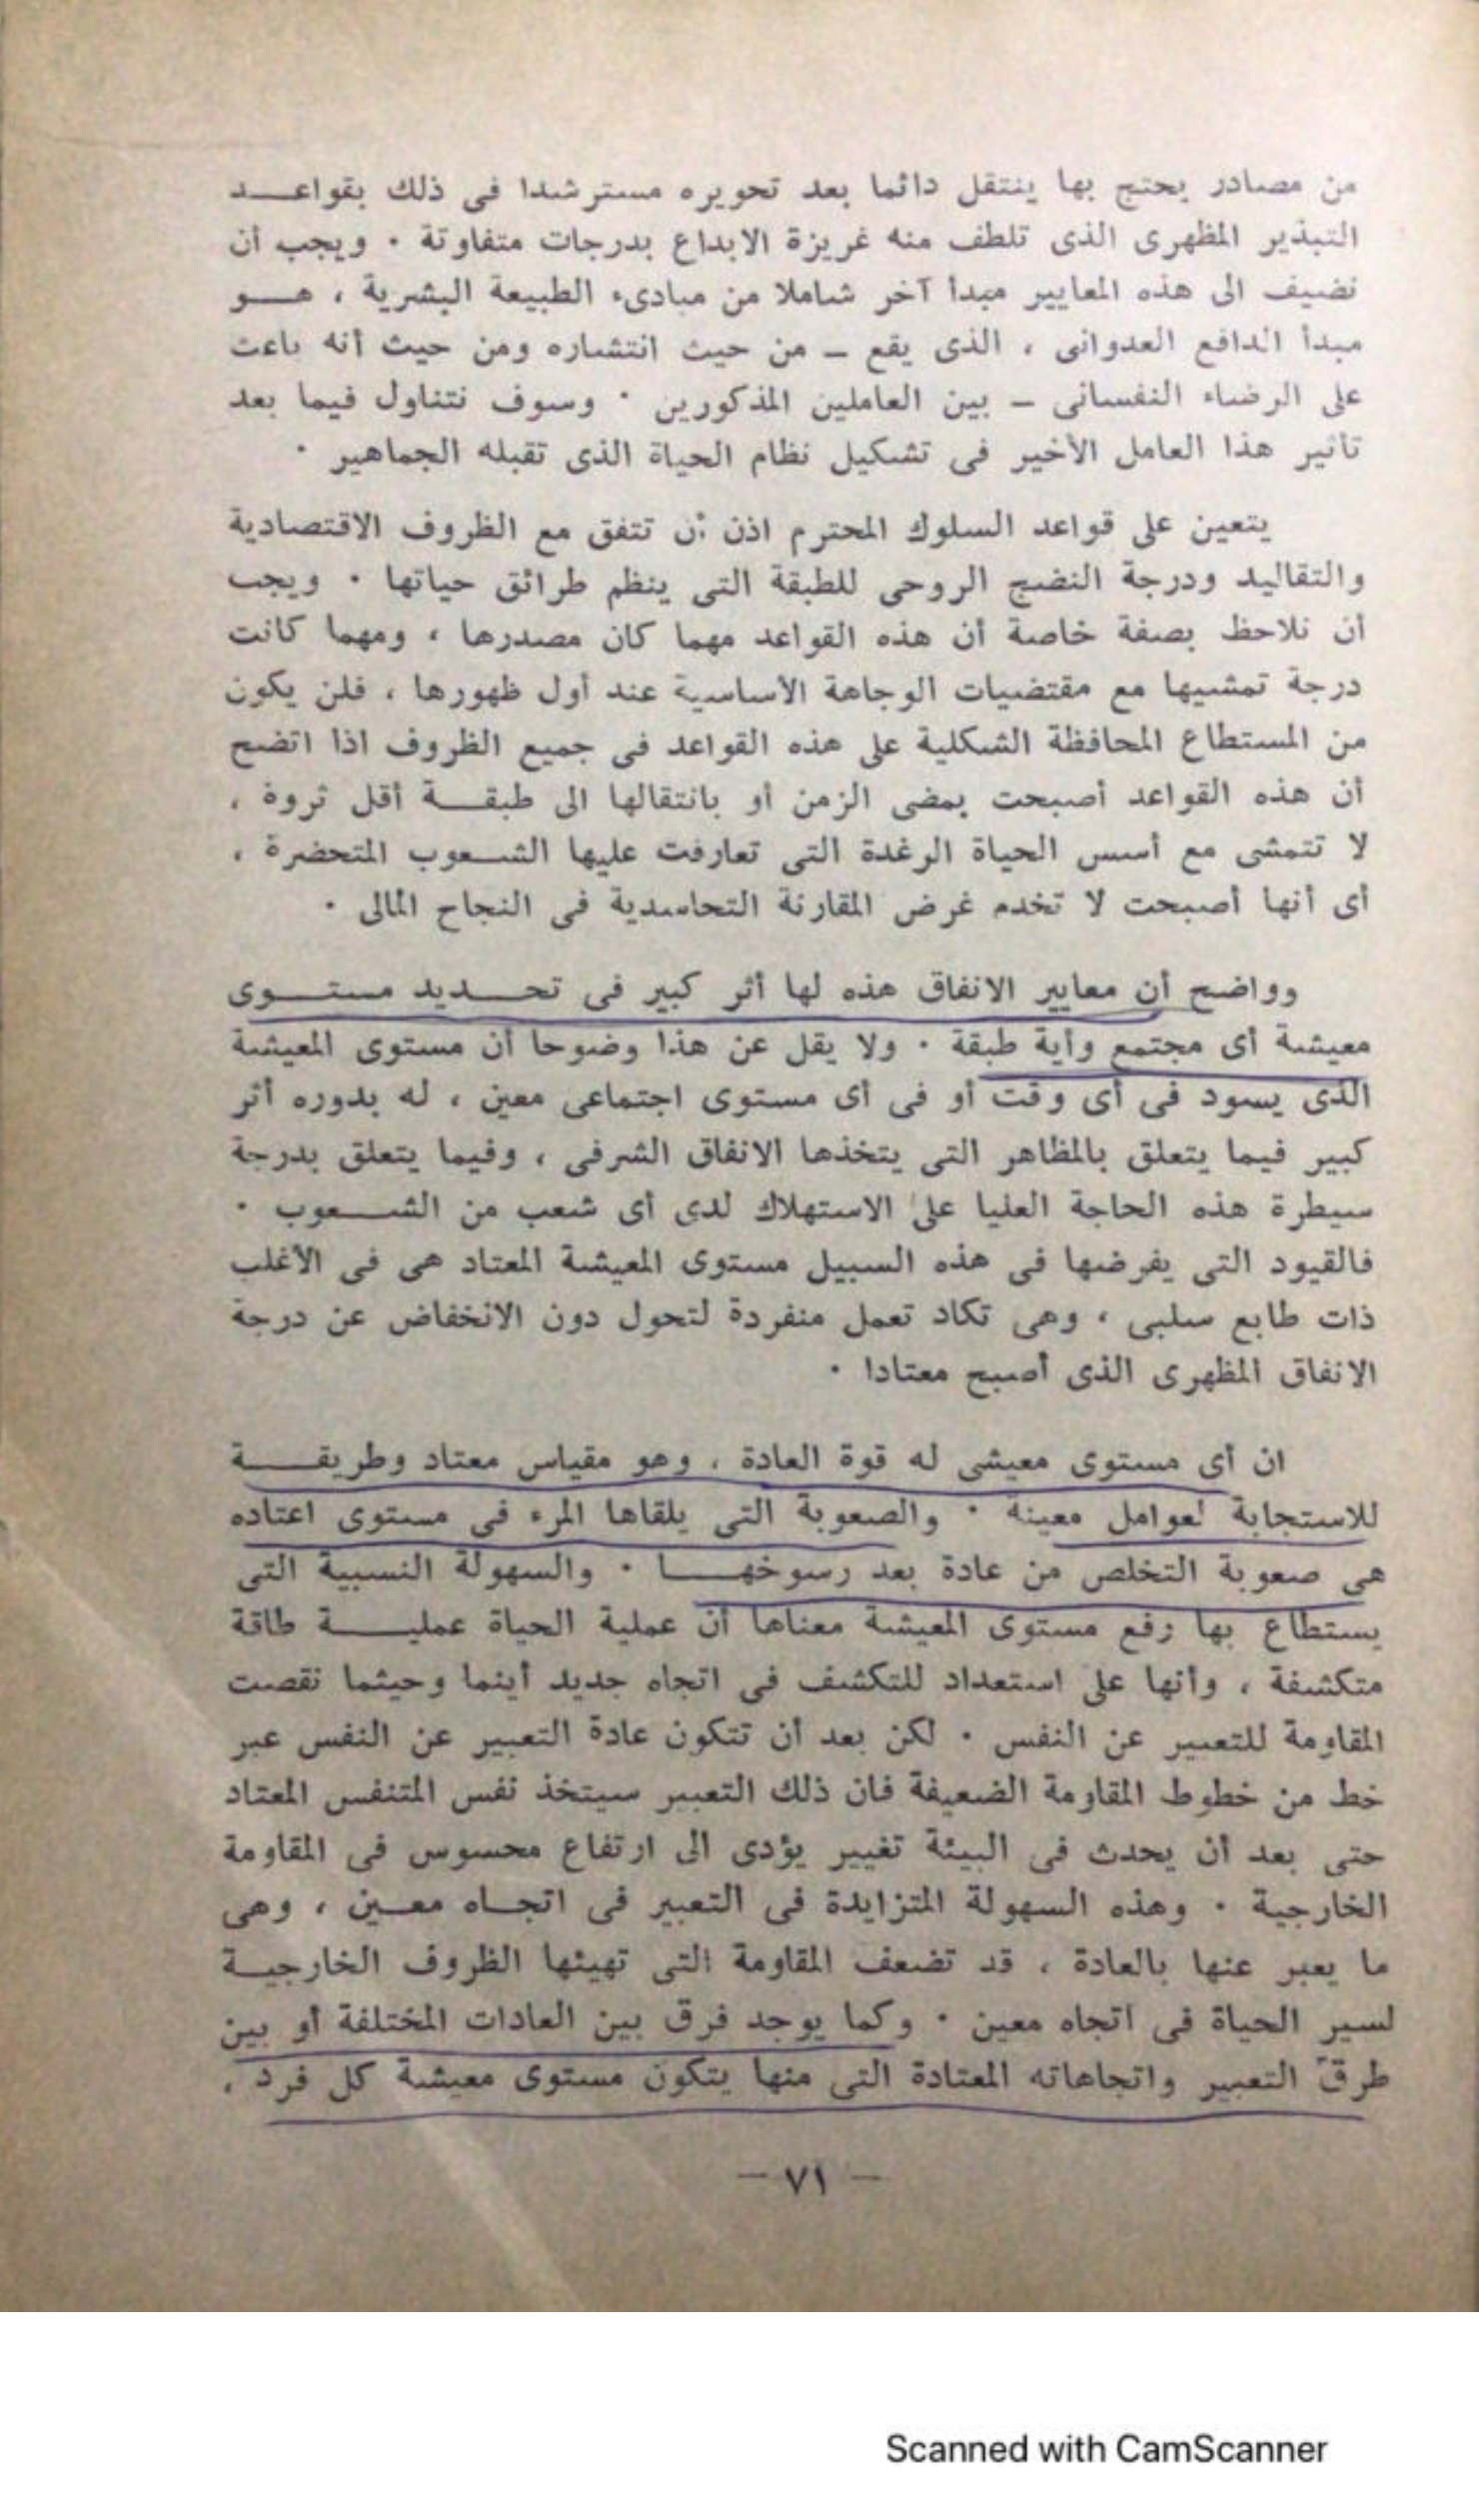 من مصادر يحتج بها ينتقل دائما بعد تحويره مسترشدا فى ذلك بقواعد
التبذير المظهرى الذى تلطف منه غريزة الابداع بدرجات متفاوتة . ويجب أن
نضيف الى هذه المعايير مبدأ آخر شاملا من مبادىء الطبيعة البشرية ، هو
مبدأ الدافع العدوانى ، الذى يقع - من حيث انتشاره ومن حيث أنه باعث
على الرضاء النفسانى - بين العاملين المذكورين . وسوف نتناول فيما بعد
تأثير هذا العامل الأخير فى تشكيل نظام الحياة الذى تقبله الجماهير .
يتعين على قواعد السلوك المحترم اذن أن تتفق مع الظروف الاقتصادية
والتقاليد ودرجة النضج الروحى للطبقة التى ينظم طرائق حياتها . ويجب
أن نلاحظ بصفة خاصة أن هذه القواعد مهما كان مصدرها ، ومهما كانت
درجة تمشيها مع مقتضيات الوجاهة الأساسية عند أول ظهورها ، فلن يكون
من المستطاع المحافظة الشكلية على هذه القواعد فى جميع الظروف اذا اتضح
أن هذه القواعد أصبحت بمضى الزمن أو بانتقالها الى طبقة أقل ثروة ،
لا تتمشى مع أسس الحياة الرغدة التى تعارفت عليها الشعوب المتحضرة ،
أى أنها أصبحت لا تخدم غرض المقارنة التحاسدية فى النجاح المالى .
وواضح أن معايير الانفاق هذه لها أثر كبير فى تحديد مستوى
معيشة أى مجتمع وأية طبقة . ولا يقل عن هذا وضوحا أن مستوى المعيشة
الذى يسود فى أى وقت أو فى أى مستوى اجتماعى معين ، له بدوره أثر
كبير فيما يتعلق بالمظاهر التى يتخذها الانفاق الشرفى ، وفيما يتعلق بدرجة
سيطرة هذه الحاجة العليا على الاستهلاك لدى أى شعب من الشعوب .
فالقيود التى يفرضها فى هذه السبيل مستوى المعيشة المعتاد هى فى الأغلب
ذات طابع سلبى ، وهى تكاد تعمل منفردة لتحول دون الانخفاض عن درجة
الانفاق المظهرى الذى أصبح معتادا .
ان أى مستوى معيشى له قوة العادة ، وهو مقياس معتاد وطريقة
للاستجابة لعوامل معينة . والصعوبة التى يلقاها المرء فى مستوى اعتاده
هى صعوبة التخلص من عادة بعد رسوخها . والسهولة النسبية التى
يستطاع بها رفع مستوى المعيشة معناها أن عملية الحياة عملية طاقة
متكشفة ، وأنها على استعداد للتكشف فى اتجاه جديد أينما وحيثما نقصت
المقاومة للتعبير عن النفس . لكن بعد أن تتكون عادة التعبير عن النفس عبر
خط من خطوط المقاومة الضعيفة فان ذلك التعبير سيتخذ نفس المتنفس المعتاد
حتى بعد أن يحدث فى البيئة تغيير يؤدى الى ارتفاع محسوس فى المقاومة
الخارجية . وهذه السهولة المتزايدة فى التعبير فى اتجاه معين ، وهى
ما يعبر عنها بالعادة ، قد تضعف المقاومة التى تهيئها الظروف الخارجية
لسير الحياة فى اتجاه معين . وكما يوجد فرق بين العادات المختلفة أو بين
طرق التعبير واتجاهاته المعتادة التى منها يتكون مستوى معيشة كل فرد ،
- ٧١ -
Scanned with CamScanner